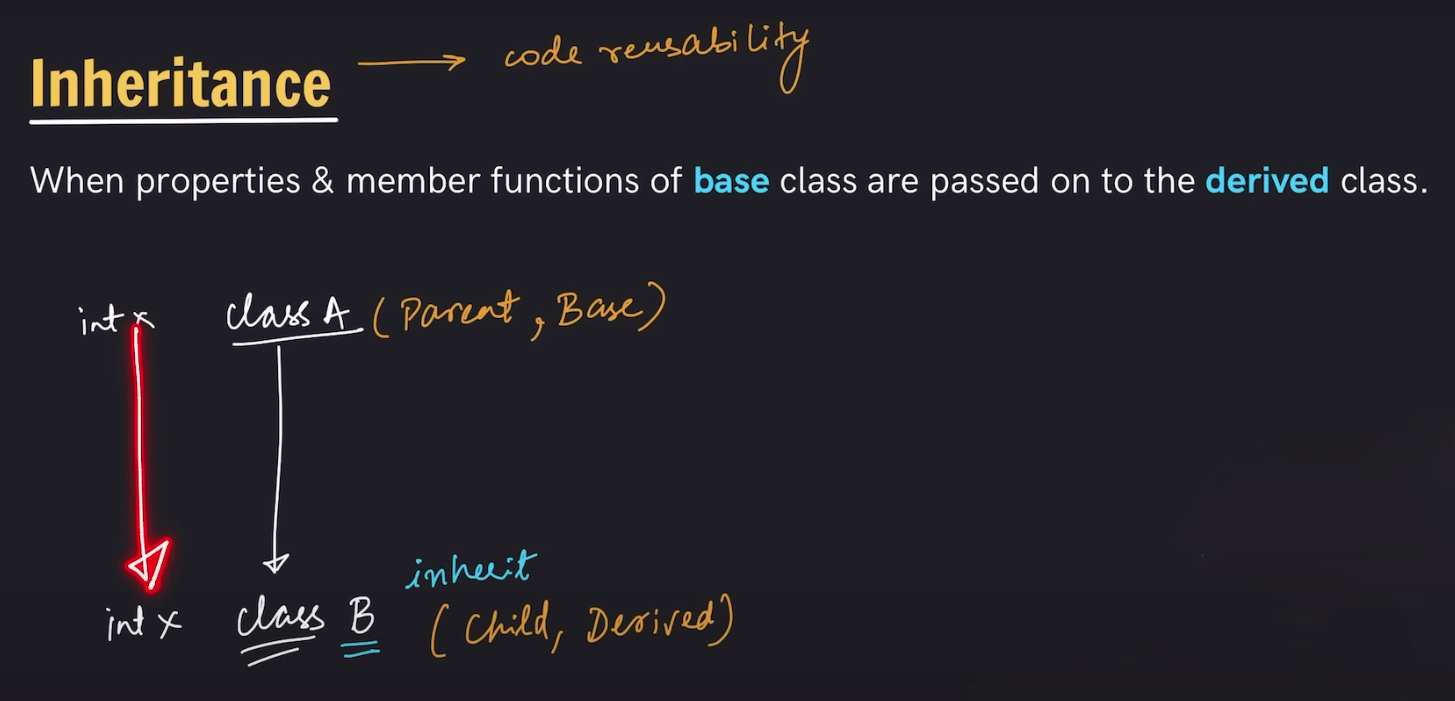 Inheritance → code reusability
When properties & member functions of base class are passed on to the derived class.
int x class A (Parent, Base)
inherit
int x class B (Child, Derived)